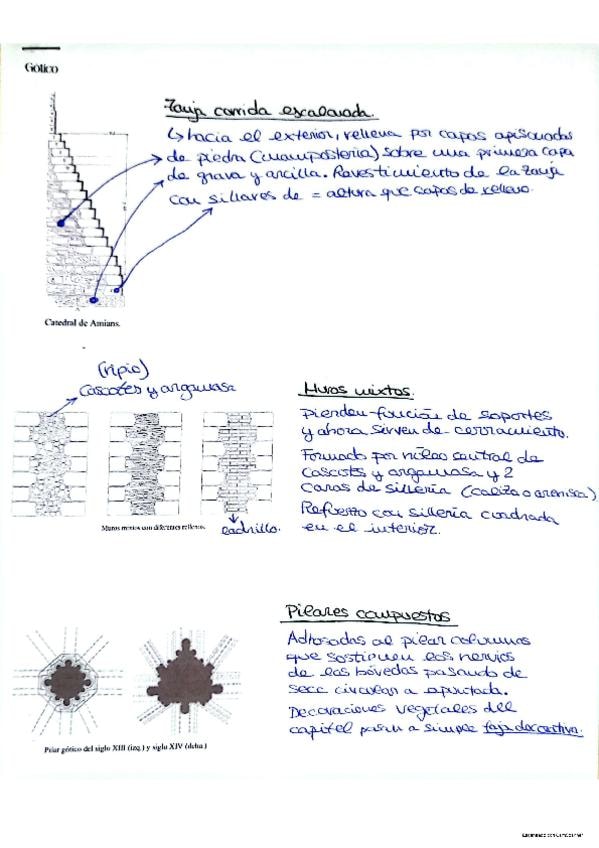 Gótico
Zanja corrida escalonada.
↳ hacia el exterior, rellena por capas apisonadas
de piedra (mampostería) sobre una primera capa
de grava y arcilla. Revestimiento de la zanja
con sillares de = altura que capas de relleno.
Catedral de Amians.
(ripio)
Cascotes y argamasa
Muros mixtos.
Pierden función de soportes
y ahora sirven de cerramiento.
Formado por núcleo central de
cascotes y argamasa y 2
caras de sillería (caliza o arenisca)
Refuerzo con sillería cuadrada
en el interior.
Muros mixtos con diferentes rellenos.
ladrillo.
Pilares compuestos
Adosadas al pilar columnas
que sostienen los nervios
de las bóvedas pasando de
secc circular a apuntada.
Decoraciones vegetales del
capitel pasan a simple faja decorativa.
Pilar gótico del siglo XIII (izq.) y siglo XIV (dcha.)